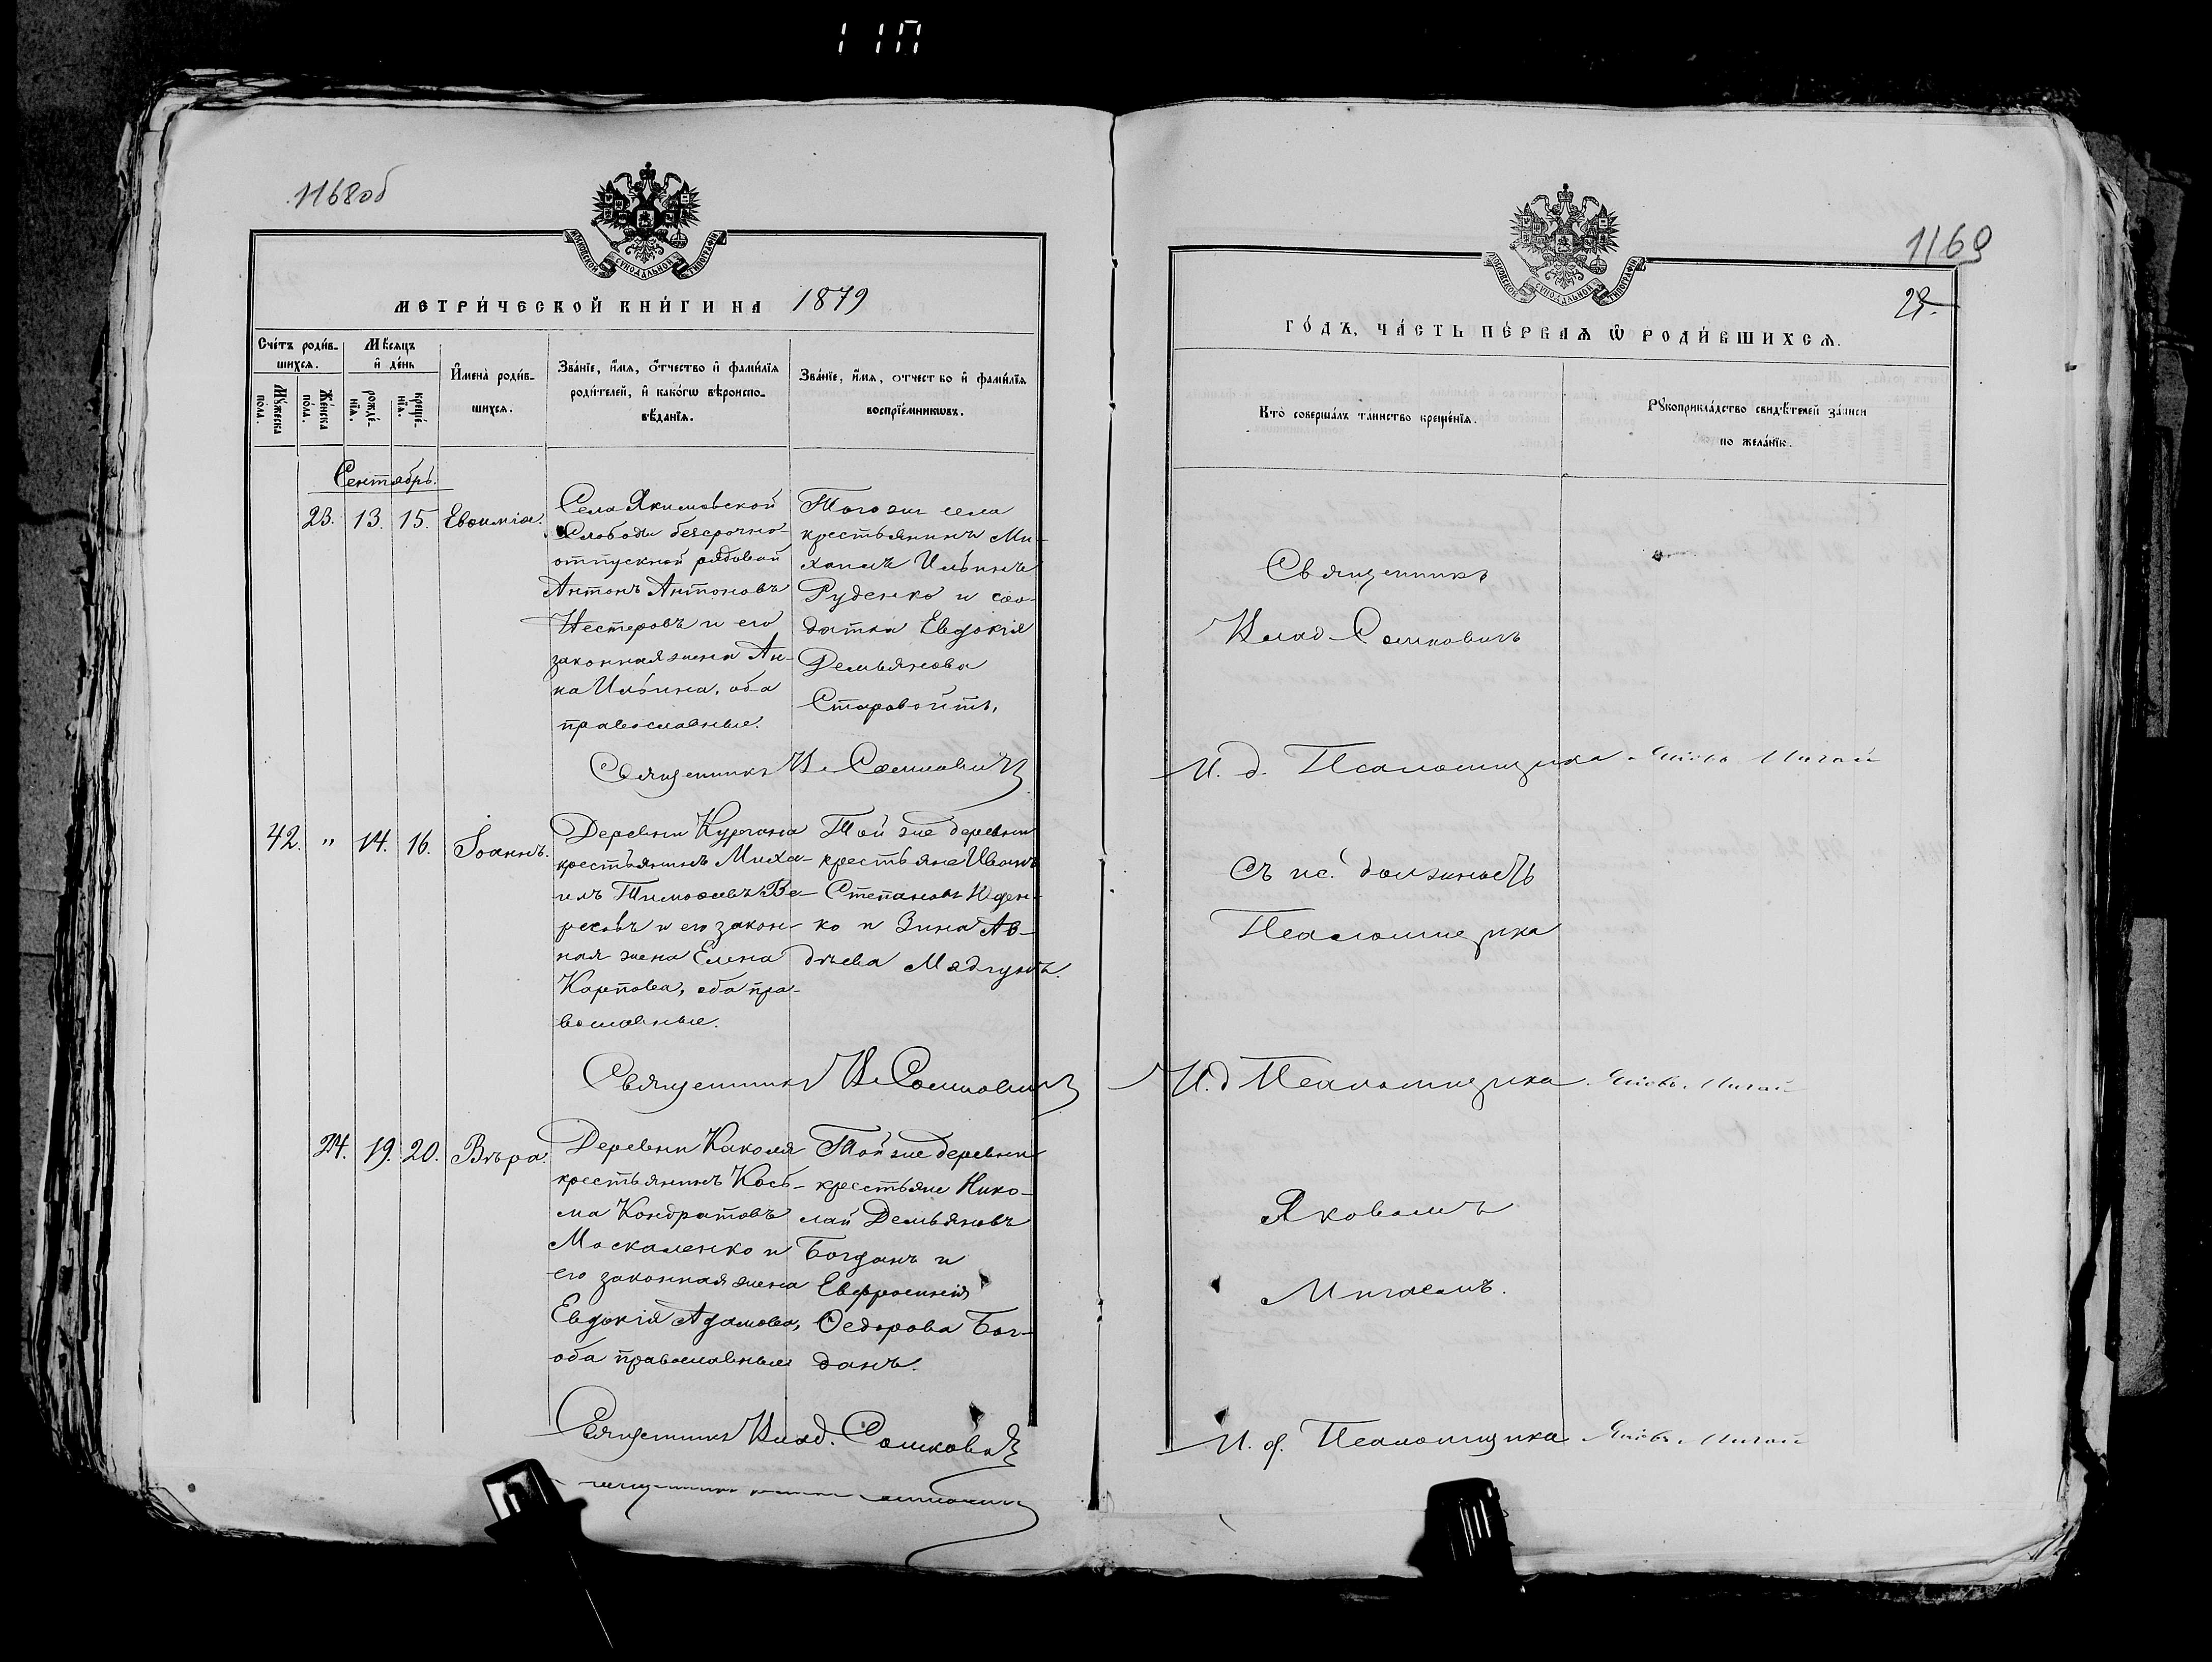 1168об
МОСКОВСКОЙ СѴНОДАЛЬНОЙ ТИПОГРАФІИ
МЕТРИ́ЧЕСКОЙ КНИ́ГИ НА 1879
Сче́тъ роди́в-
шихсѧ.
Мѣ́сѧцъ
и҆ де́нь
Мꙋ́жеска
по́ла.
Же́нска
по́ла.
рожде́-
нїѧ.
креще́-
нїѧ.
И҆мена̀ роди́в-
шихсѧ.
Зва́нїе, и҆́мѧ, ѻ҆́тчество и҆ фами́лїѧ
роди́телей, и҆ како́гѡ вѣроиспо-
вѣ́данїѧ.
Зва́нїе, и҆́мѧ, отчество и҆ фами́лїѧ
воспрїе́мникѡвъ.
Сентябрь.
23. 13. 15. Евѳимія.
Села Якимовской
Слободы безсрочно-
отпускной рядовой
Антонъ Антоновъ
Нестеровъ и его
законная жена Ан-
на Ильина, оба
православные.
Того же села
крестьянинъ Ми-
хаилъ Ильинъ
Руденко и сол-
датка Евдокія
Демьянова
Старовойтъ.
Священникъ
42. " 14. 16. Іоаннъ.
Деревни Кургана
крестьянинъ Миха-
илъ Тимоѳеевъ Ве-
ресовъ и его закон-
ная жена Елена
Карпова, оба пра-
вославные.
Той же деревни
крестьяне Иванъ
Степановъ Юден-
ко и Зина Ав-
дѣева
Священникъ
24. 19. 20. Вѣра.
Деревни Каколя
крестьянинъ Кось-
ма Кондратовъ
Москаленко и
его законная жена
Евдокія Адамова,
оба православные
Той же деревни
крестьяне Нико-
лай Демьяновъ
Богданъ и
Евфросинія
Ѳедорова Бог-
данъ.
Священникъ Влад.
1169
29.
МОСКОВСКОЙ СѴНОДАЛЬНОЙ ТИПОГРАФІИ
ГО́ДЪ, ЧА́СТЬ ПЕ́РВАѦ Ѡ҆ РОДИ́ВШИХСѦ.
Кто̀ соверша́лъ та́инство креще́нїѧ.
Рꙋкоприкла́дство свидѣ́телей за́писи
по жела́нїю.
Священникъ
Влад.
И. д. Псаломщика Яковъ
съ ис. должность
Псаломщика
И. д. Псаломщика Яковъ
Яковомъ
И. д. Псаломщика Яковъ